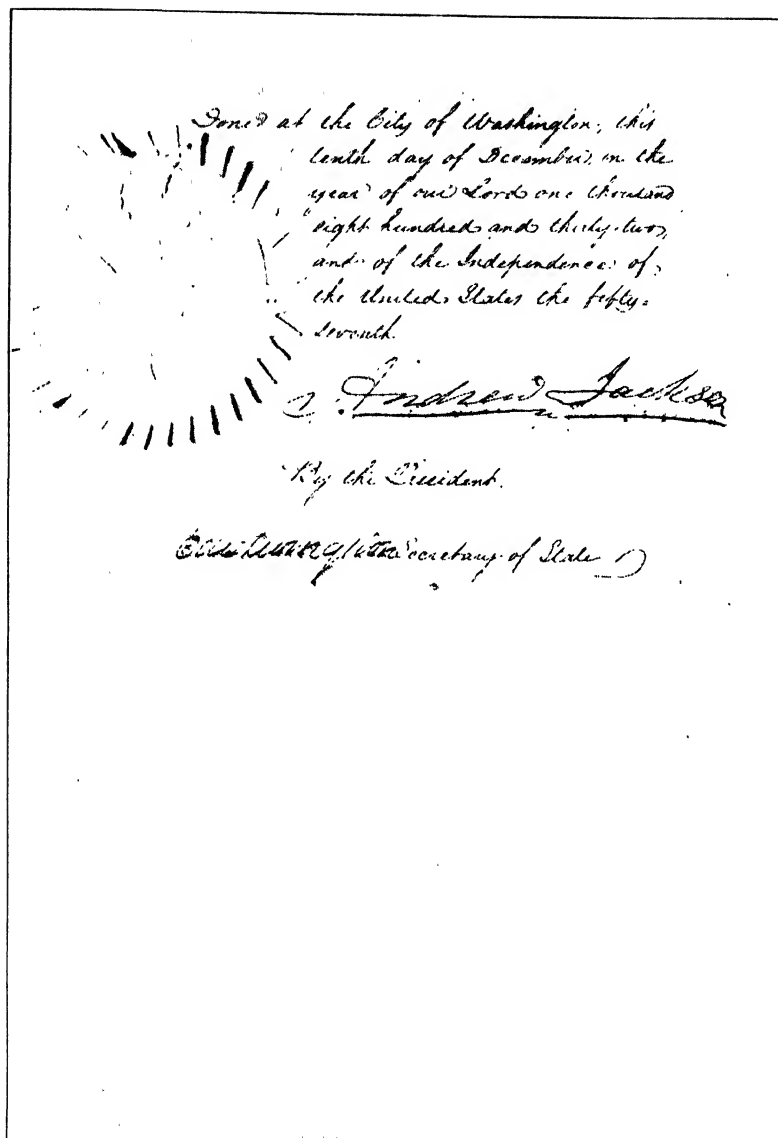 Done at the City of Washington, this
tenth day of December, in the
year of our Lord one thousand
eight hundred and thirty-two,
and of the Independence of
the United States the fifty-
seventh.
Andrew Jackson
By the President.
Edw Livingston Secretary of State